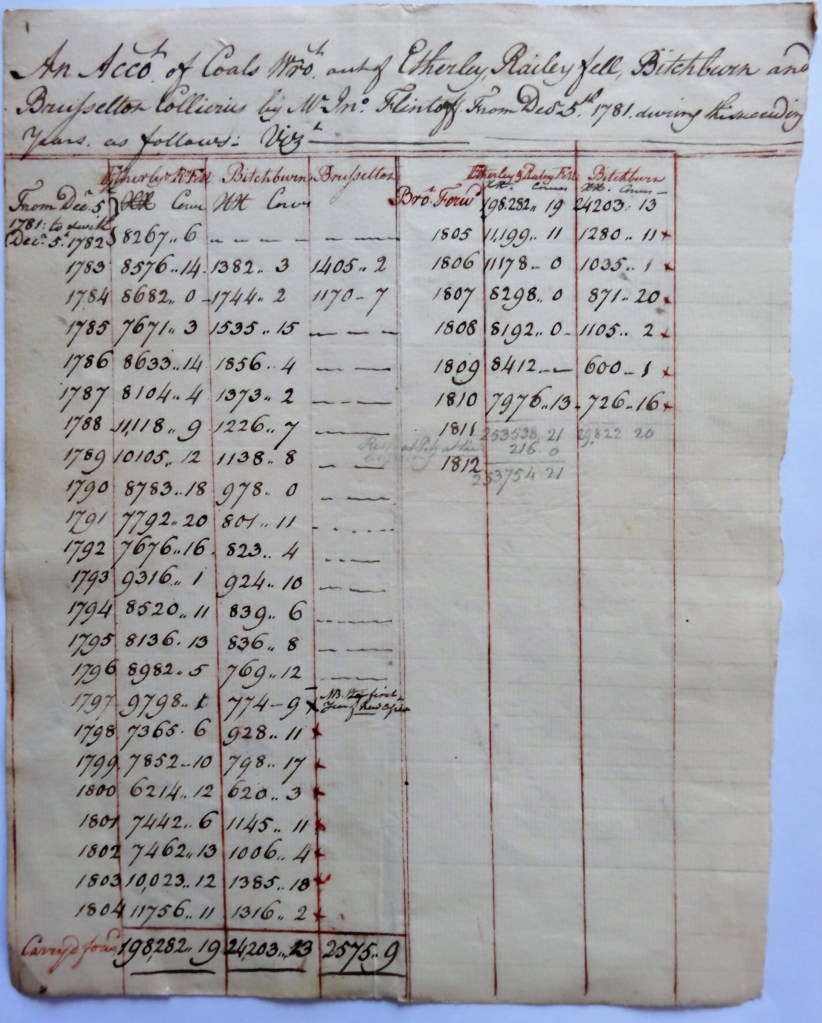 An Acco.t of Coals Wro.t out of Etherley, Railey fell, Bitchburn and
Brusselton Collieries by Mr Jno. Flintoff From Decr. 5th 1781. during
Years. as follows: Vizt
Etherley & R. Fell Bitchburn Brusselton
From Decr. 5th Corves Corves
1781: to
Decr. 5th 1782 8267.. 6
1783 8576.. 14 1382.. 3 1405.. 2
1784 8682.. 0 1744.. 2 1170 - 7
1785 7671.. 3 1535.. 15
1786 8633.. 14 1856.. 4
1787 8104.. 4 1373.. 2
1788 11,118.. 9 1226.. 7
1789 10105.. 12 1138.. 8
1790 8783.. 18 978.. 0
1791 7792.. 20 801.. 11
1792 7676.. 16 823.. 4
1793 9316.. 1 924.. 10
1794 8520.. 11 839.. 6
1795 8136. 13 836.. 8
1796 8982.. 5 769.. 12
1797 9798.. 1 774 - 9 x NB. first
Year of New
1798 7365. 6 928.. 11 x
1799 7852.. 10 798.. 17 x
1800 6214.. 12 620.. 3 x
1801 7442.. 6 1145.. 11 x
1802 7462.. 13 1006.. 4 x
1803 10,023.. 12 1385.. 18 x
1804 11756.. 11 1316.. 2 x
Carry'd forwd 198,282.. 19 24,203.. 13 2575.. 9
Etherley & Railey Fell Bitchburn
Corves Corves
Bro.t Forwd 198,282.. 19 24203. 13
1805 11,199.. 11 1280.. 11 x
1806 11178.. 0 1035.. 1 x
1807 8298.. 0 871.. 20 x
1808 8192.. 0 1105.. 2 x
1809 8412 600 - 1 x
1810 7976.. 13 726.. 16 x
1811 253538. 21 29,822 20
216 0
1812 253754 21